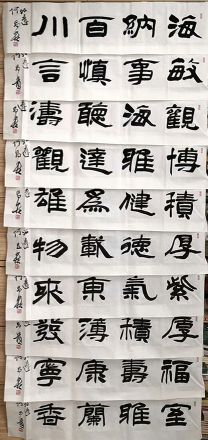 海納百川
敏事慎言
觀海聽濤
博雅達觀
積健爲雄
厚德載物
紫氣東來
厚積薄發
福壽康寧
室雅蘭香